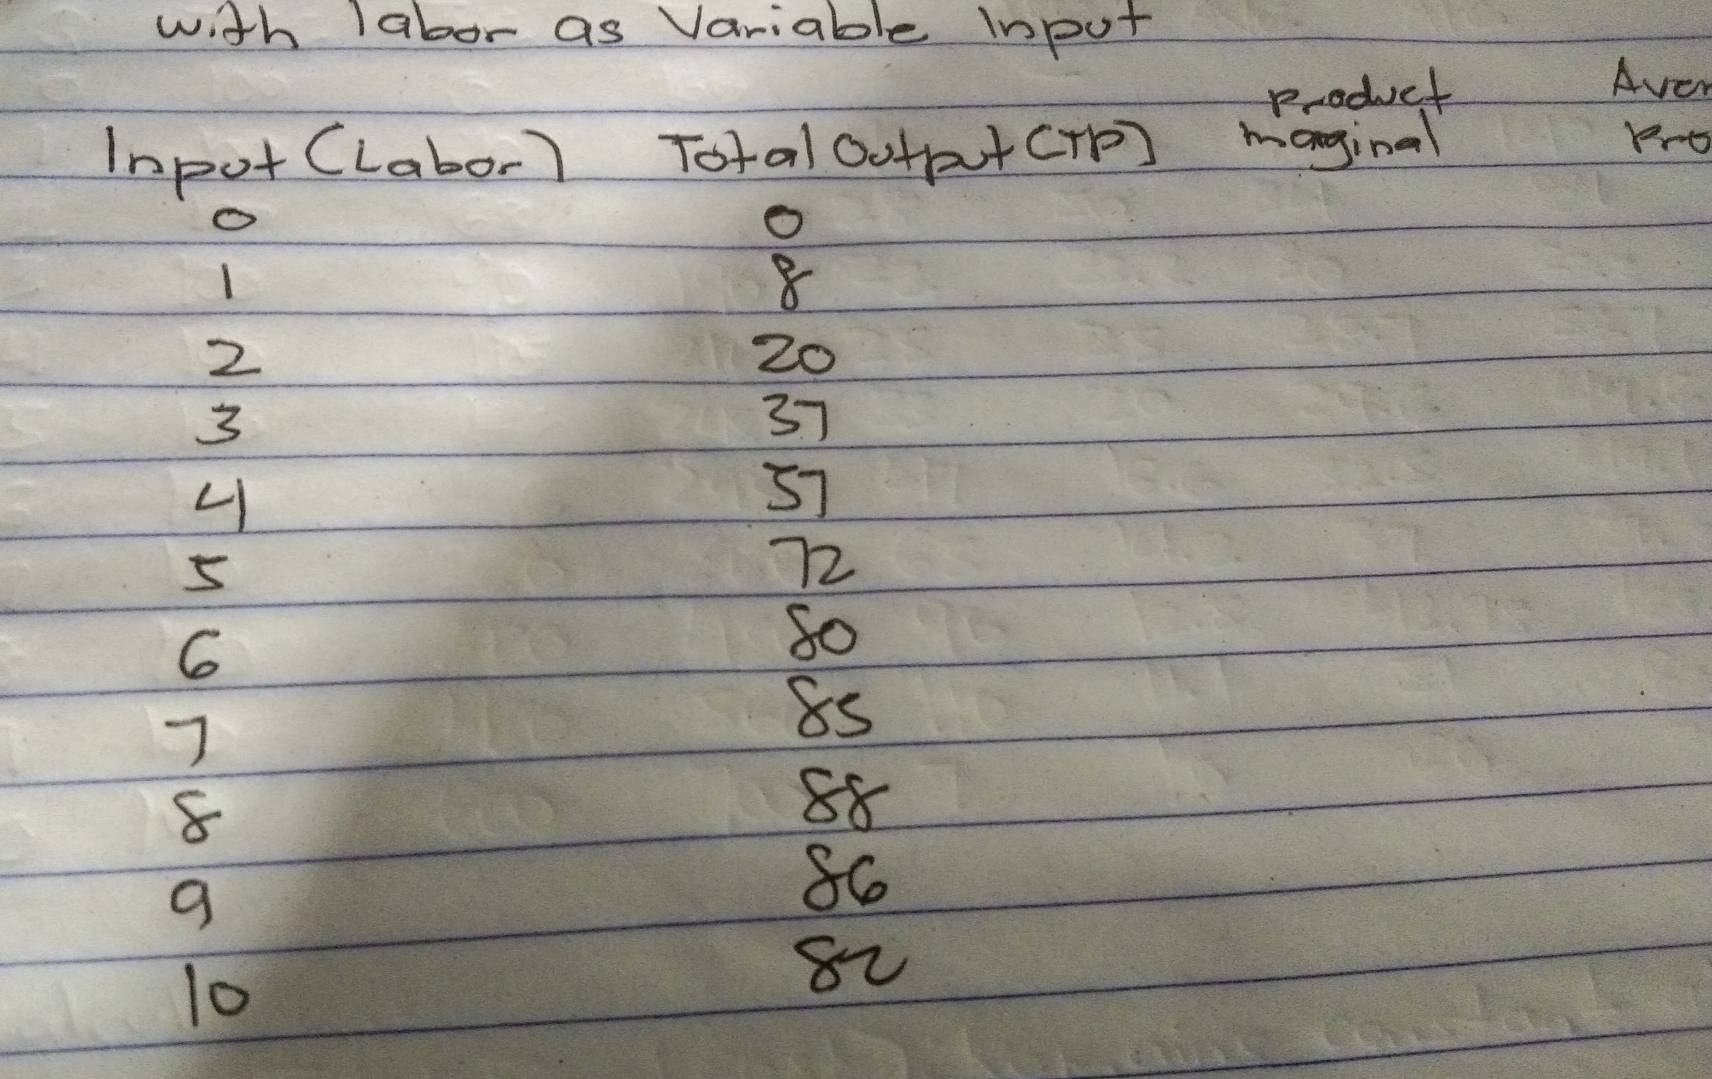 with labor as Variable Input
product Aver
Input (Labor) Total Output (TP) marginal Pro
0 0
1 8
2 20
3 37
4 57
5 72
6 80
7 85
8 88
9 86
10 82